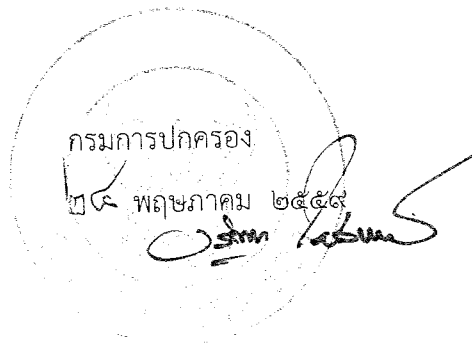 กรมการปกครอง
๒๔ พฤษภาคม ๒๕๕๙